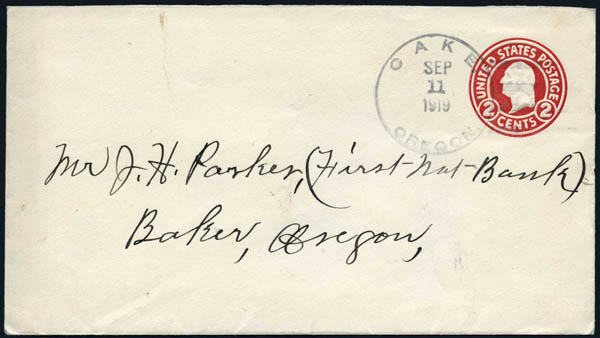 OAKE
SEP
11
1919
OREGON.
UNITED STATES POSTAGE
2 CENTS 2
Mr J. H. Parker, (First Nat Bank)
Baker, Oregon,